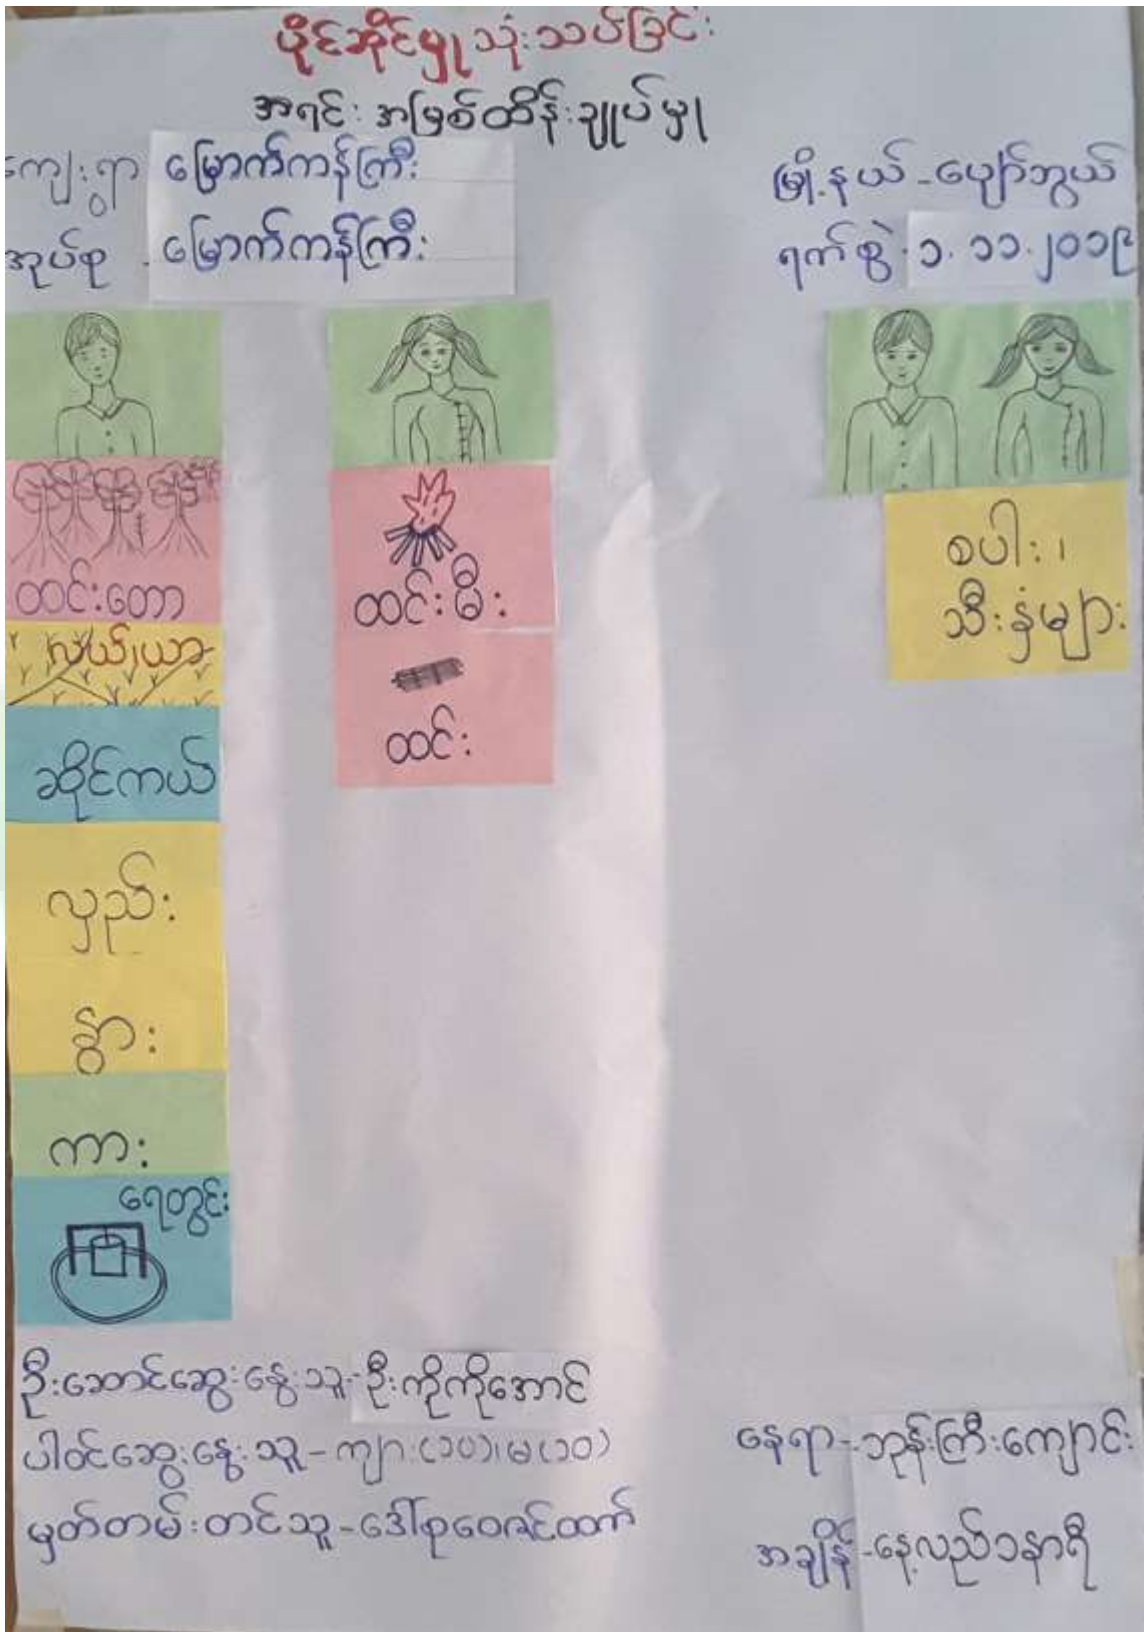 ပိုင်ဆိုင်မှု သုံးသပ်ခြင်း
အရင်းအမြစ်ထိန်းချုပ်မှု
ကျေးရွာ မြောက်ကန်ကြီး
အုပ်စု - မြောက်ကန်ကြီး
မြို့နယ် - ပျော်ဘွယ်
ရက်စွဲ - ၁.၁၁.၂၀၁၉
ထင်းတော
လယ်၊ယာ
ဆိုင်ကယ်
လှည်း
နွား
ကား
ရေတွင်း
ထင်းမီး
ထင်း
စပါး၊
သီးနှံများ
ဦးဆောင်ဆွေးနွေးသူ - ဦးကိုကိုအောင်
ပါဝင်ဆွေးနွေးသူ - ကျား(၁၀)၊ မ(၁၀)
မှတ်တမ်းတင်သူ - ဒေါ်စုဝေဇင်ထက်
နေရာ - ဘုန်းကြီးကျောင်း
အချိန် - နေ့လည်၁နာရီ